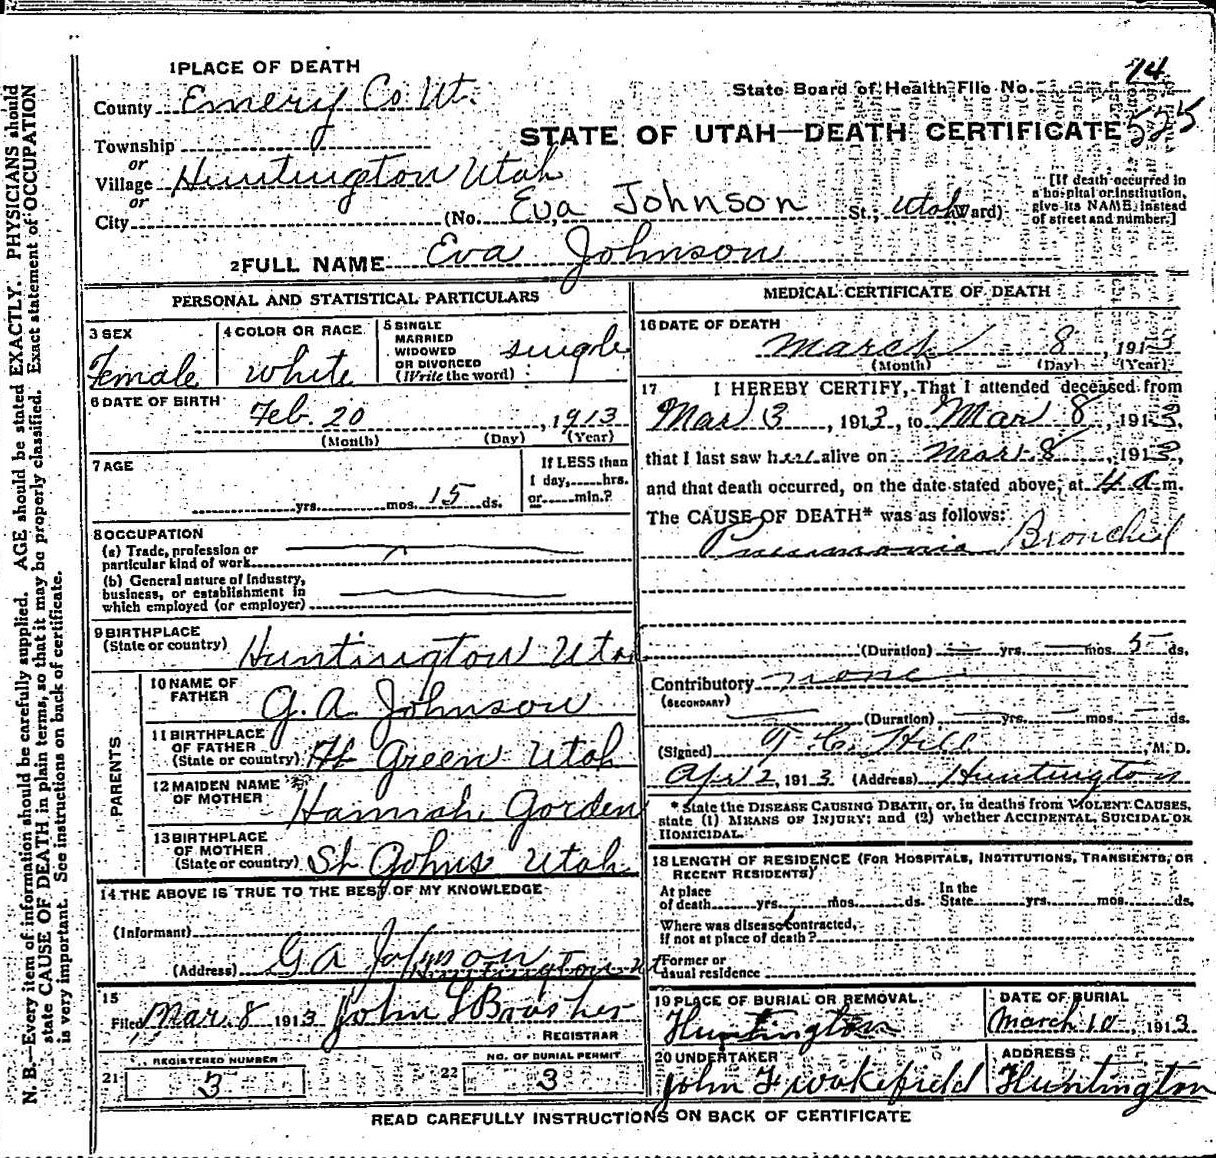 1 PLACE OF DEATH
County Emery Co Ut.
State Board of Health File No. 74
525
STATE OF UTAH—DEATH CERTIFICATE
Township
or
Village Huntington Utah
or
City (No. Eva Johnson St.; Utah Ward)
[If death occurred in
a hospital or institution,
give its NAME instead
of street and number.]
2 FULL NAME Eva Johnson
PERSONAL AND STATISTICAL PARTICULARS
3 SEX
Female
4 COLOR OR RACE
White
5 SINGLE
MARRIED
WIDOWED
OR DIVORCED
(Write the word)
single
6 DATE OF BIRTH
Feb. 20, 1913
(Month) (Day) (Year)
7 AGE
yrs. mos. 15 ds.
If LESS than
1 day, hrs.
or min.?
8 OCCUPATION
(a) Trade, profession or
particular kind of work
(b) General nature of industry,
business, or establishment in
which employed (or employer)
9 BIRTHPLACE
(State or country) Huntington Utah
PARENTS
10 NAME OF
FATHER G. A. Johnson
11 BIRTHPLACE
OF FATHER
(State or country) Mt Green Utah
12 MAIDEN NAME
OF MOTHER Hannah Gorden
13 BIRTHPLACE
OF MOTHER
(State or country) St Johns Utah
14 THE ABOVE IS TRUE TO THE BEST OF MY KNOWLEDGE
(Informant) G A Johnson
(Address) Huntington Ut
15
Filed Mar. 8 1913 John L Brasher
REGISTRAR
REGISTERED NUMBER
21 3
NO. OF BURIAL PERMIT
22 3
MEDICAL CERTIFICATE OF DEATH
16 DATE OF DEATH
March 8, 1913
(Month) (Day) (Year)
17 I HEREBY CERTIFY, That I attended deceased from
Mar 3, 1913, to Mar 8, 1913,
that I last saw her alive on Mar. 8, 1913,
and that death occurred, on the date stated above, at 4 a m.
The CAUSE OF DEATH* was as follows:
Pneumonia Bronchial
(Duration) yrs. mos. 5 ds.
Contributory none
(SECONDARY)
(Duration) yrs. mos. ds.
(Signed) Hill, M. D.
Apr 2, 1913 (Address) Huntington
* State the DISEASE CAUSING DEATH, or, in deaths from VIOLENT CAUSES,
state (1) MEANS OF INJURY; and (2) whether ACCIDENTAL, SUICIDAL OR
HOMICIDAL.
18 LENGTH OF RESIDENCE (FOR HOSPITALS, INSTITUTIONS, TRANSIENTS, OR
RECENT RESIDENTS)
At place
of death yrs. mos. ds.
In the
State yrs. mos. ds.
Where was disease contracted,
if not at place of death?
Former or
usual residence
19 PLACE OF BURIAL OR REMOVAL
Huntington
DATE OF BURIAL
March 10, 1913
20 UNDERTAKER
John F Wakefield
ADDRESS
Huntington
READ CAREFULLY INSTRUCTIONS ON BACK OF CERTIFICATE
N. B.—Every item of information should be carefully supplied. AGE should be stated EXACTLY. PHYSICIANS should
state CAUSE OF DEATH in plain terms, so that it may be properly classified. Exact statement of OCCUPATION
is very important. See instructions on back of certificate.